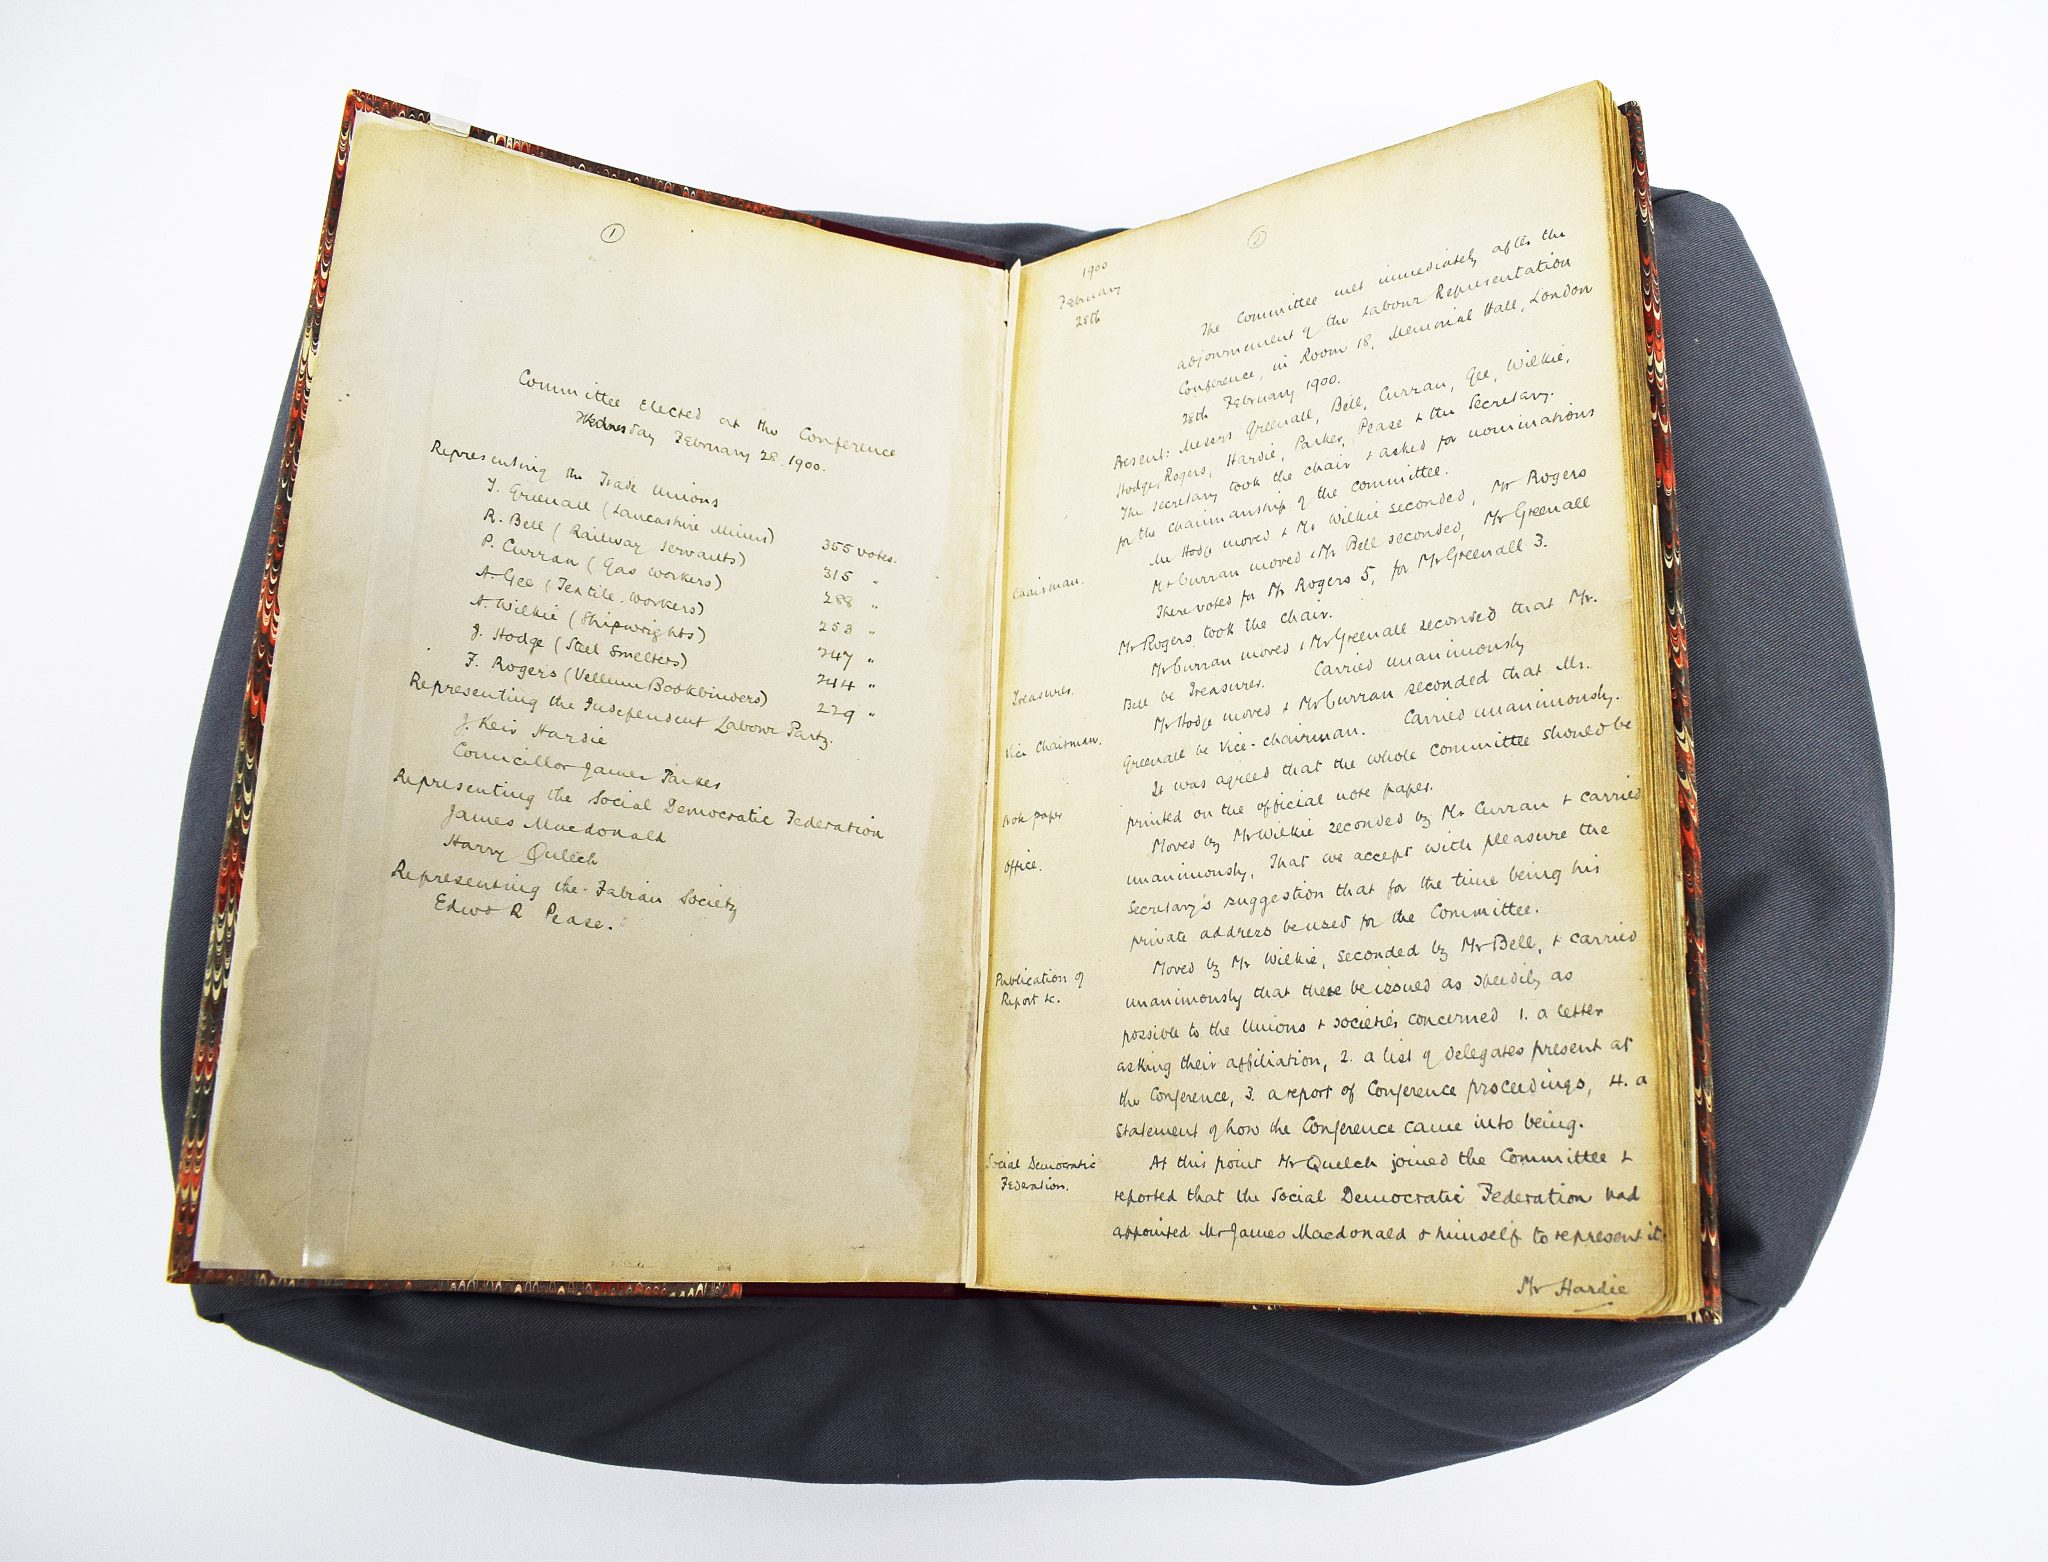 1
Committee Elected at the Conference
Wednesday February 28. 1900.
Representing the Trade Unions
T. Greenall (Lancashire Miners) 355 votes.
R. Bell (Railway Servants) 315 "
P. Curran (Gas Workers) 288 "
A. Gee (Textile Workers) 253 "
A. Wilkie (Shipwrights) 247 "
J. Hodge (Steel Smelters) 244 "
F. Rogers (Vellum Bookbinders) 229 "
Representing the Independent Labour Party.
J. Keir Hardie
Councillor James Parker
Representing the Social Democratic Federation
James Macdonald
Harry Quelch
Representing the Fabian Society
Edwd R Pease.
2
1900
February
28th
The Committee met immediately after the
adjournment of the Labour Representation
Conference, in Room 18, Memorial Hall, London
28th February 1900.
Present: Messrs Greenall, Bell, Curran, Gee, Wilkie,
Hodge, Rogers, Hardie, Parker, Pease & the Secretary.
The Secretary took the chair & asked for nominations
for the chairmanship of the Committee.
Chairman.
Mr Hodge moved & Mr Wilkie seconded, Mr Rogers
Mr Curran moved & Mr Bell seconded, Mr Greenall
There voted for Mr Rogers 5, for Mr Greenall 3.
Mr Rogers took the chair.
Treasurer.
Mr Curran moved & Mr Greenall seconded that Mr.
Bell be Treasurer. Carried unanimously
Vice Chairman.
Mr Hodge moved & Mr Curran seconded that Mr.
Greenall be Vice-chairman. Carried unanimously.
Note paper
It was agreed that the whole Committee should be
printed on the official note paper.
Office.
Moved by Mr Wilkie seconded by Mr Curran & carried
unanimously, That we accept with pleasure the
Secretary's suggestion that for the time being his
private address be used for the Committee.
Publication of
Report &c.
Moved by Mr Wilkie, seconded by Mr Bell, & carried
unanimously that there be issued as speedily as
possible to the Unions & societies concerned 1. a letter
asking their affiliation, 2. a list of delegates present at
the Conference, 3. a report of Conference proceedings, 4. a
statement of how the Conference came into being.
Social Democratic
Federation.
At this point Mr Quelch joined the Committee &
reported that the Social Democratic Federation had
appointed Mr James Macdonald & himself to represent it.
Mr Hardie